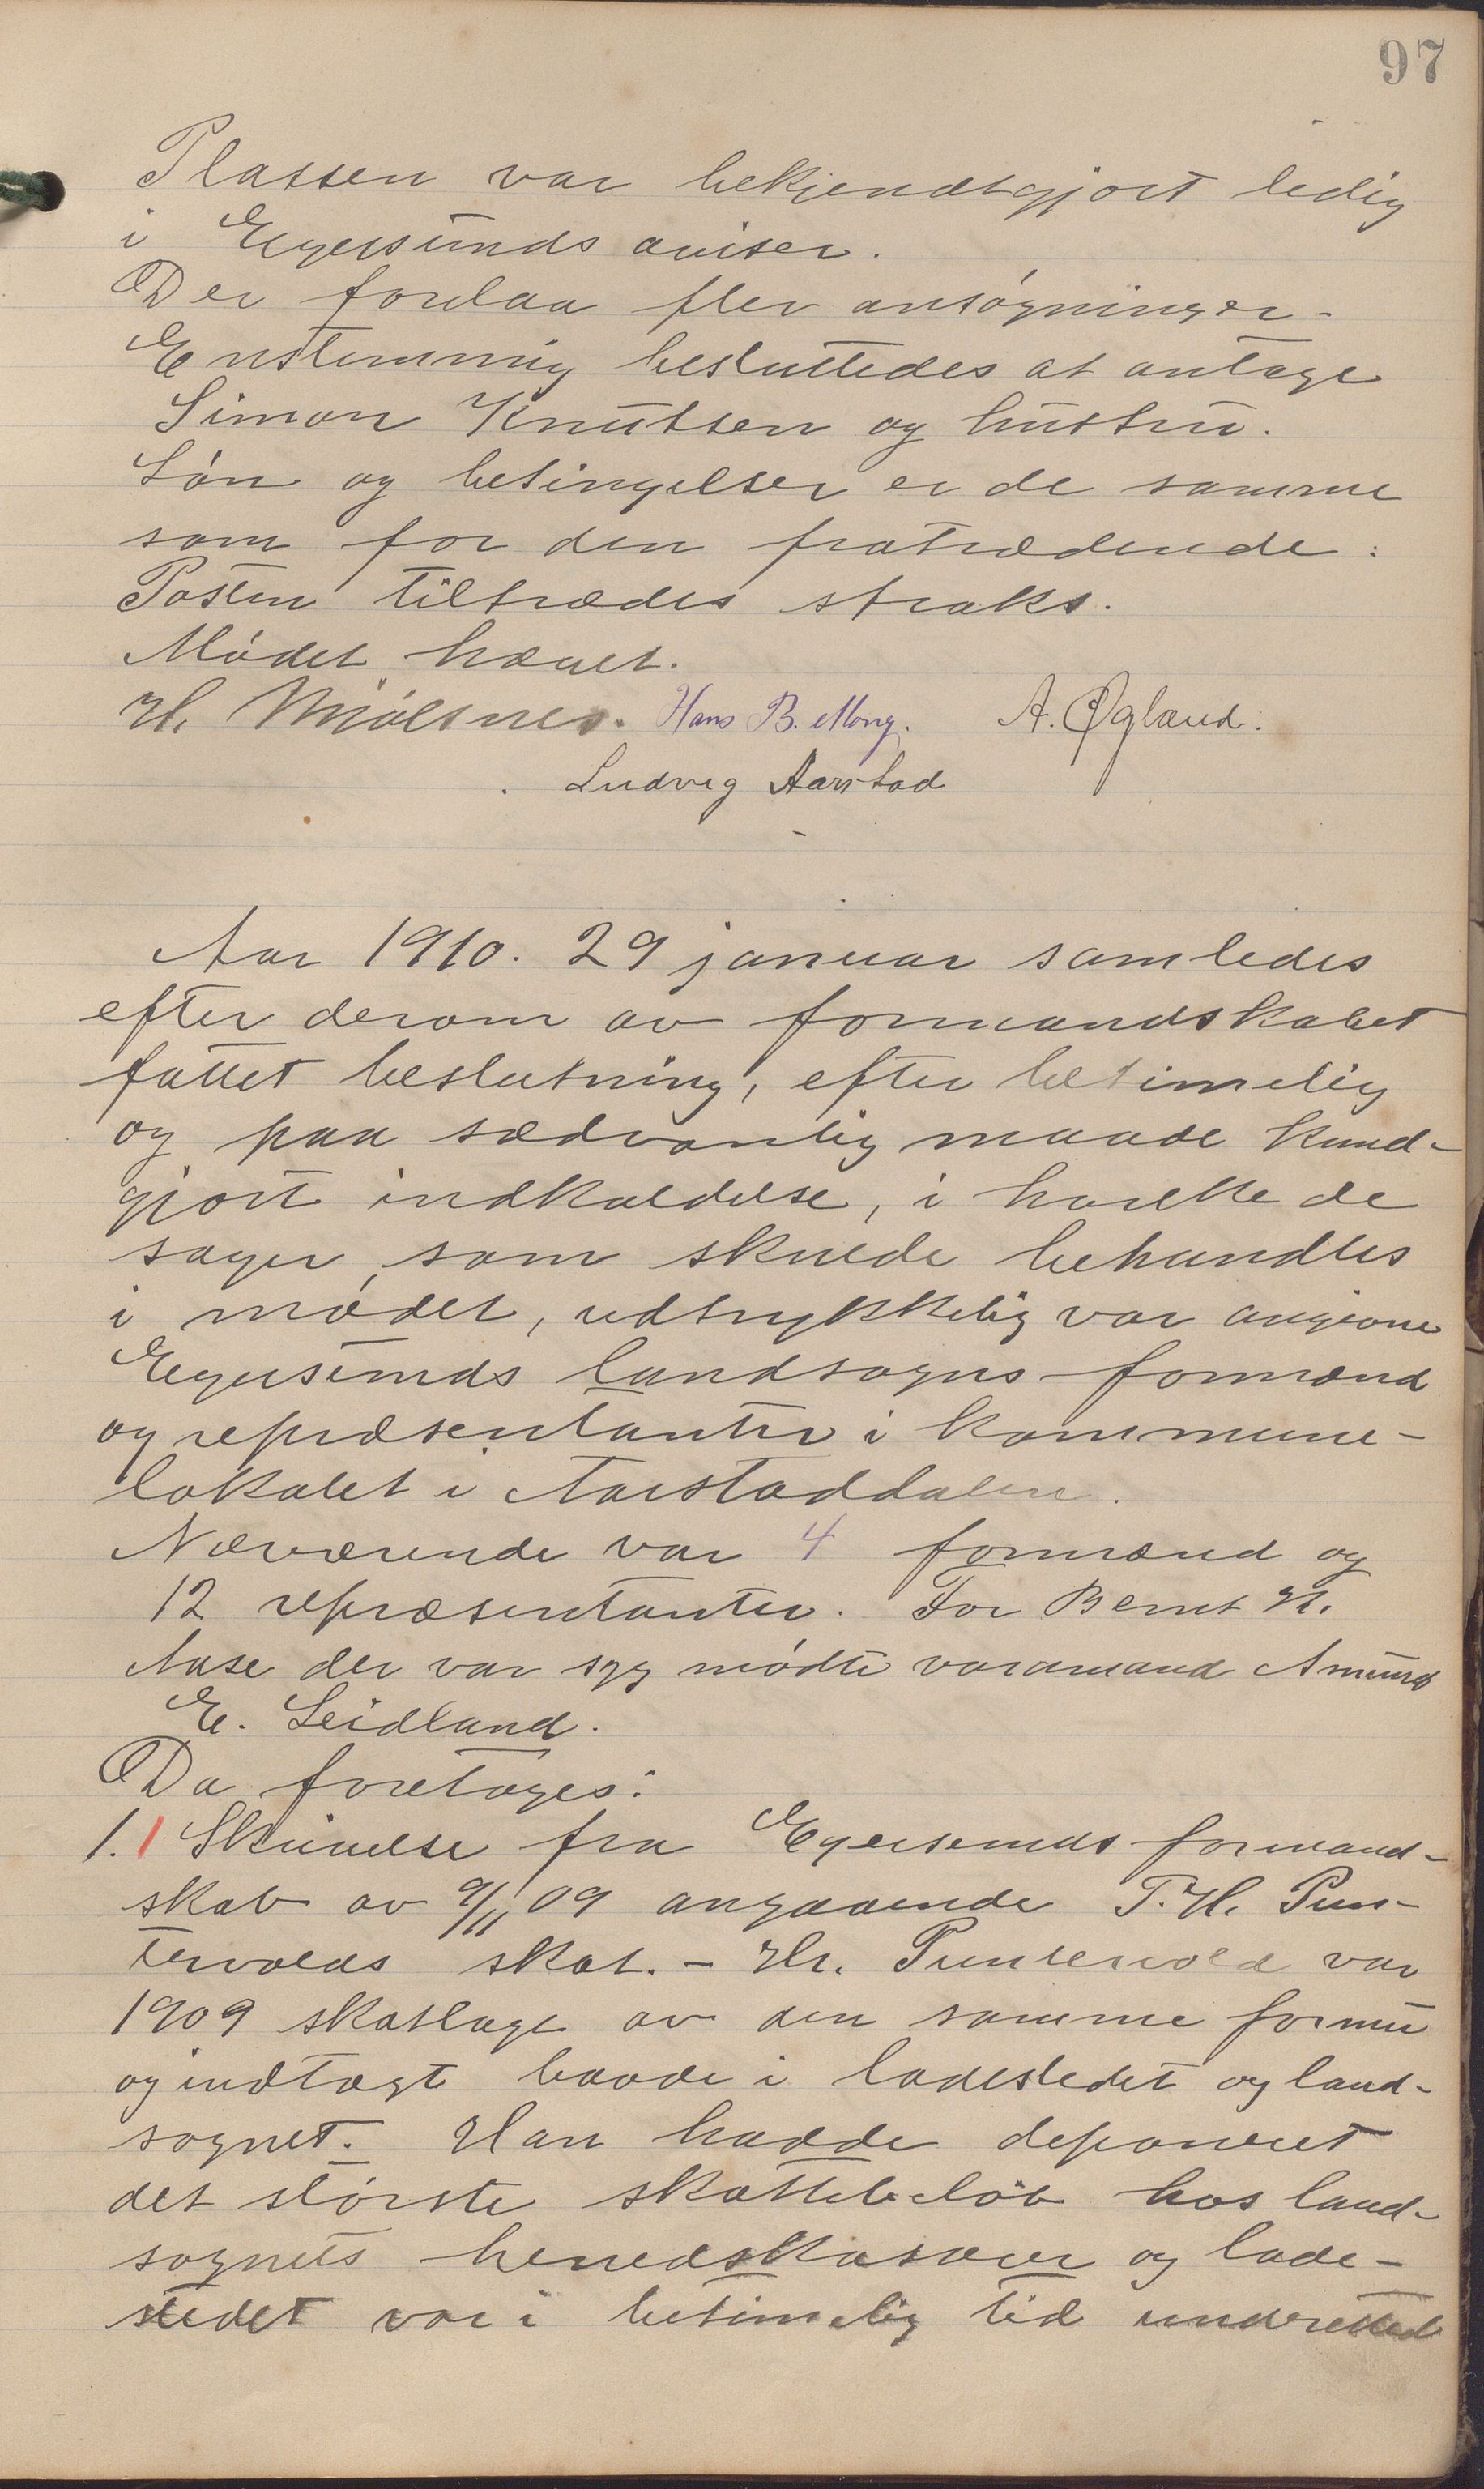 97
Plassen var bekjendtgjort ledig
i Egersunds aviser.
Der forelaa fler ansøgninger.
Enstemmig besluttedes at antage
Simon Knutsen og hustru.
Løn og betingelser er de samme
som for den fratrædende.
Posten tiltrædes straks.
Mødet hævet.
H. Mjølsnes. Hans B. Mong. A. Øgland.
Ludvig Aarstad
Aar 1910. 29 januar samledes
efter derom av formandskabet
fattet beslutning, efter betimelig
og paa sædvanlig maade kund-
gjort indkaldelse, i hvilke de
sager, som skulde behandles
i mødet, udtrykkelig var angivne
Egersunds landsogns formænd
og repræsentanter i kommune-
lokalet i Aarstaddalen.
Nærværende var 4 formænd og
12 repræsentanter. For Bernt H.
Aase der var syg mødte varamand Amund
E. Leidland.
Da foretoges:
1. 1 Skrivelse fra Egersunds formand-
skab av 9/11 09 angaaende T. H. Pun-
tervolds skat. - Hr. Puntervold var
1909 skatlagt av den samme formue
og indtægt baade i ladestedet og land-
sognet. Han hadde deponeret
det største skattebeløb hos land-
sognets herredskasserer og lade-
stedet var i betimelig tid underrettet